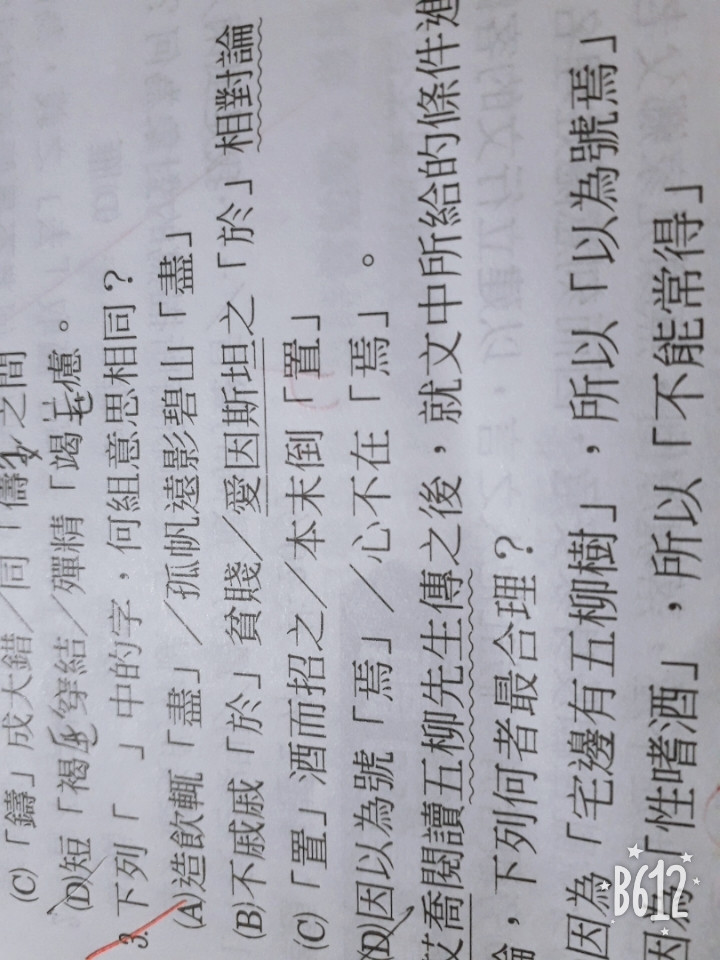 (C)「鑄」成大錯／同「儔」之間
(D)短「褐」穿結／殫精「竭」慮。
3. 下列「　」中的字，何組意思相同？
(A)造飲輒「盡」／孤帆遠影碧山「盡」
(B)不戚戚「於」貧賤／愛因斯坦之「於」相對論
(C)「置」酒而招之／本末倒「置」
(D)因以為號「焉」／心不在「焉」。
艾喬閱讀五柳先生傳之後，就文中所給的條件進
論，下列何者最合理？
因為「宅邊有五柳樹」，所以「以為號焉」
因為「性嗜酒」，所以「不能常得」
B612